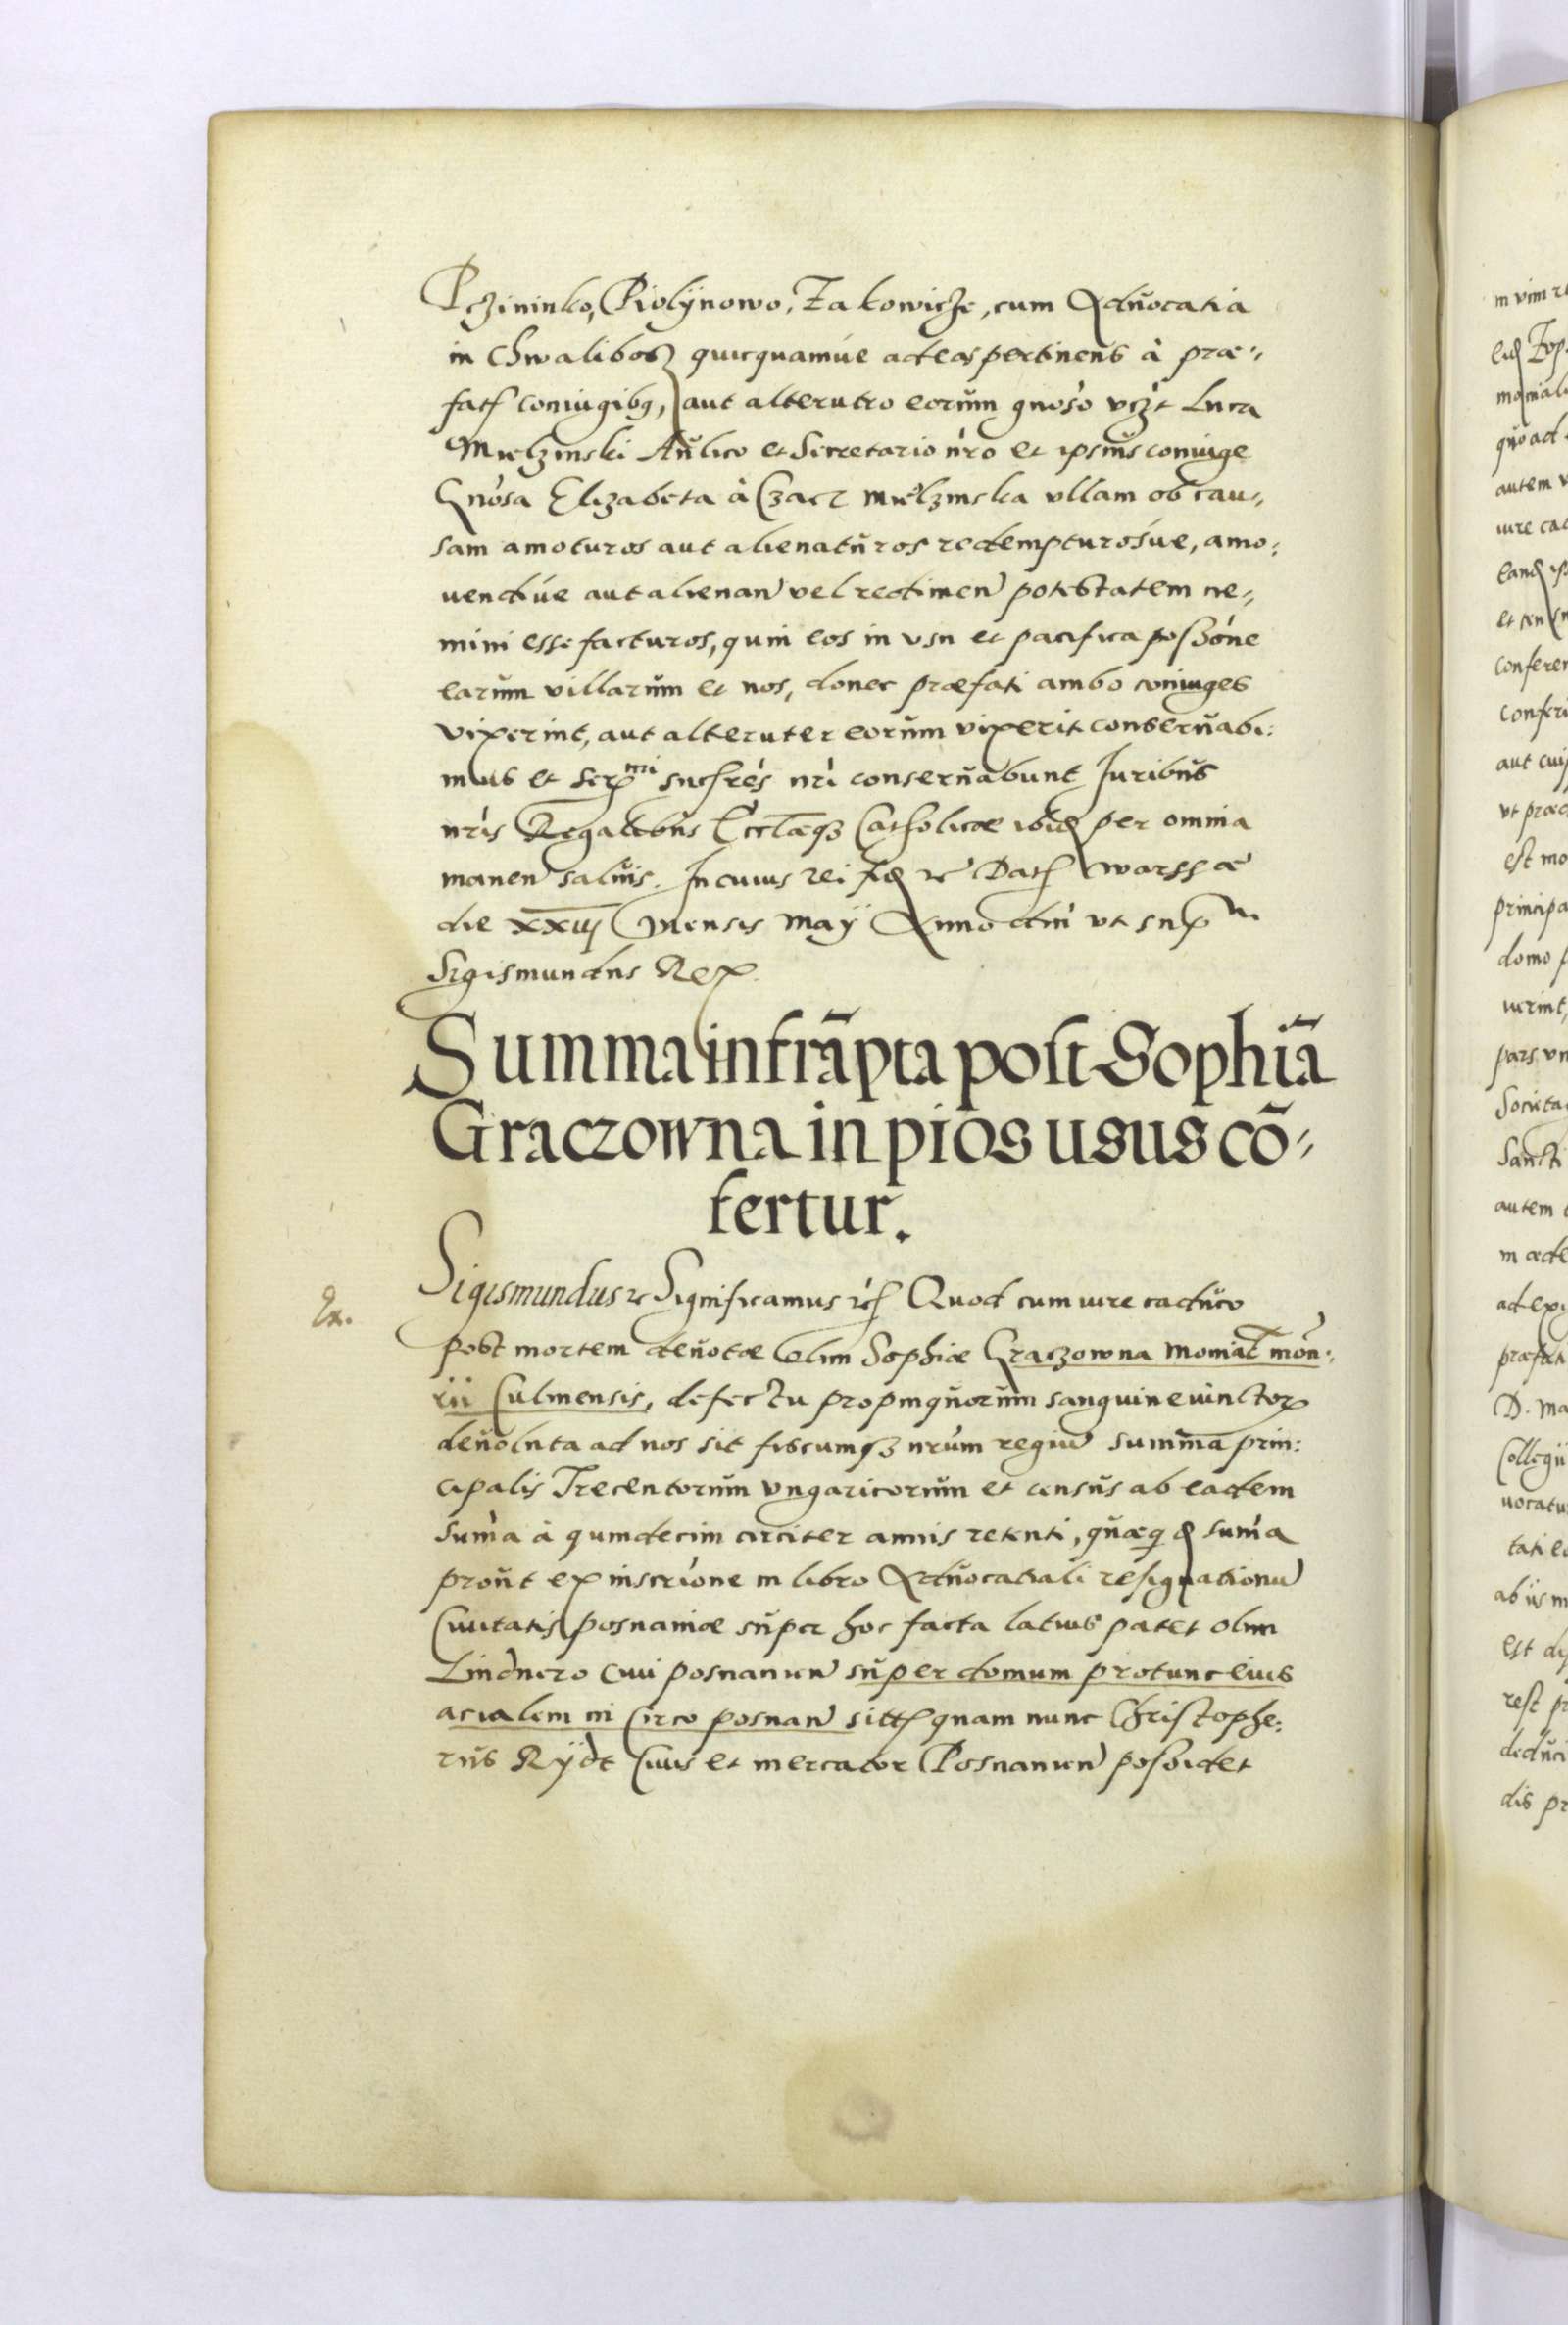 Pczininko, Piolÿnowo, Zakowicze, cum Aduocatia
in Chwalibog quicquamúe ad eas pertinens à præ-
fatis coniugibq, aut alterutro eorum gnoso vczt Luca
Mielzinski Aulico et Secretario nro et ipsius coniuge
Gnosa Elizabeta à Czacz Mielzinska vllam ob cau-
sam amoturos aut alienaturos redempturosúe, amo-
uendiúe aut alienan vel redimen potestatem ne-
mini esse facturos, quin eos in vsu et pacifica possone
earum villarum et nos, donec præfati ambo coniuges
vixerint, aut alteruter eorum vixerit conseruabi-
mus et Ser mi sucsres nri conseruabunt Juribus
nris Regalibus Ecclæq3 Catholicæ ibid per omnia
manen saluis. In cuius rei fid rc Dat Warssæ
die xxiij Mensis Maÿ Anno dni vt sup
Sigismundus Rex.
Summa infrāpta post Sophiā
Graczowna in pios usus cō-
fertur.
Sigismundus rc Significamus rc Quod cum iure caduco
post mortem deuotæ olim Sophiæ Graczowna Monial mon-
rii Culmensis, defectu propinquorum sanguine iunctor
deuoluta ad nos sit fiscumq3 nrum regiu summa prin-
cipalis Trecentorum vngaricorum et census ab eadem
suma à quindecim circiter annis retenti, quæq d suma
prout ex inscrione in libro Aduocatiali resignationu
Ciuitatis posnaniæ super hoc facta latius patet olim
Lindnero Ciui posnanien super domum pro tunc eius
acialem in Circo posnan sitt quam nunc Christophe-
rus Rÿdt Ciuis et mercator Posnanien possidet